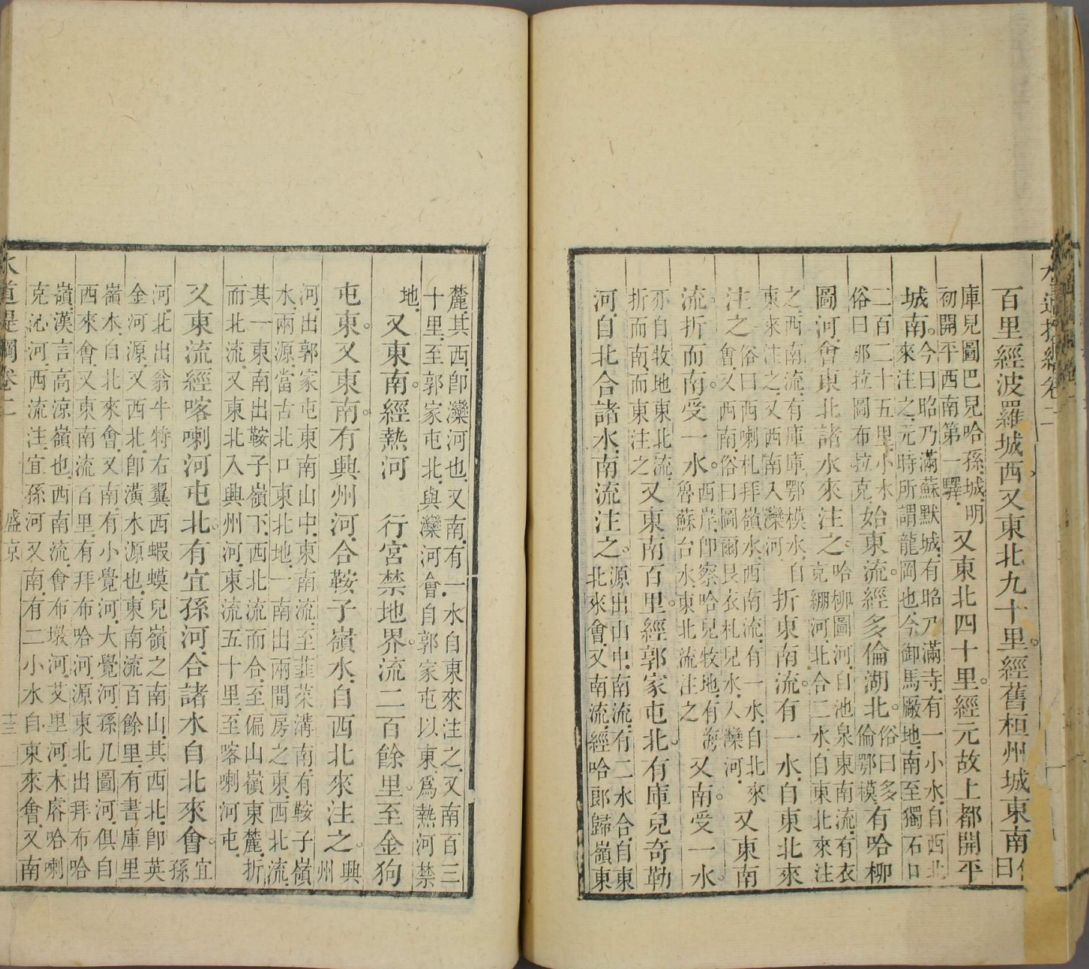 水道提綱卷二
百里經波羅城西又東北九十里經舊桓州城東南曰
庫兒圖巴兒哈孫城明初開平西南第一驛又東北四十里經元故上都開平
城南今曰昭乃滿蘇默城有昭乃滿寺有一小水自西北來注之元時所謂龍岡也今御馬厰地南至獨石口
二百二十五里小水俗曰那拉圖布拉克始東流經多倫湖北俗曰多倫鄂模有哈柳
圖河會東北諸水來注之哈柳圖河自池泉東南流有衣克繃河北合二水自東北來注
之西南流有庫鄂模水自東來注之又西南入灤河折東南流有一水自東北來
注之俗曰喇札拜嶺水西南流有一水自北來會又西南俗曰圖爾艮衣札兒水入灤河又東南
流折而南受一水西岸卽察哈兒牧地有海魯蘇台水東北流注之又南受一水
亦自牧地東北流折而南而東注之又東南百里經郭家屯北有庫兒奇勒
河自北合諸水南流注之源出山中南流有二水合自東北來會又南流經哈郎歸嶺東
麓其西卽灤河也又南有一水自東來注之又南百三十里至郭家屯北與灤河會自郭家屯以東爲熱河禁
地又東南經熱河 行宮禁地界流二百餘里至金狗
屯東又東南有興州河合鞍子嶺水自西北來注之興州
河出郭家屯東南山中東南流至韮菜溝南有鞍子嶺水兩源當古北口東北地一南出兩間房之東西北流
其一東南出鞍子嶺下西北流而合至偏山嶺東麓折而北流又東北入興州河東流五十里至喀喇河屯
又東流經喀喇河屯北有宜孫河合諸水自北來會宜孫
河北出翁牛特右翼西蝦蟆兒嶺之南山其西北卽英金河源又西北卽潢水源也東南流百餘里有書庫里
嶺水自北來會又南有小覺河大覺河孫兀圖河俱自西來會又東南流百里有拜布哈河源東北出拜布哈
嶺漢言高涼嶺也西南流會布墩河艾里河木㕎哈喇克沁河西流注宜孫河又南有二小水自東來會又南
水道提綱卷二 盛京 十三